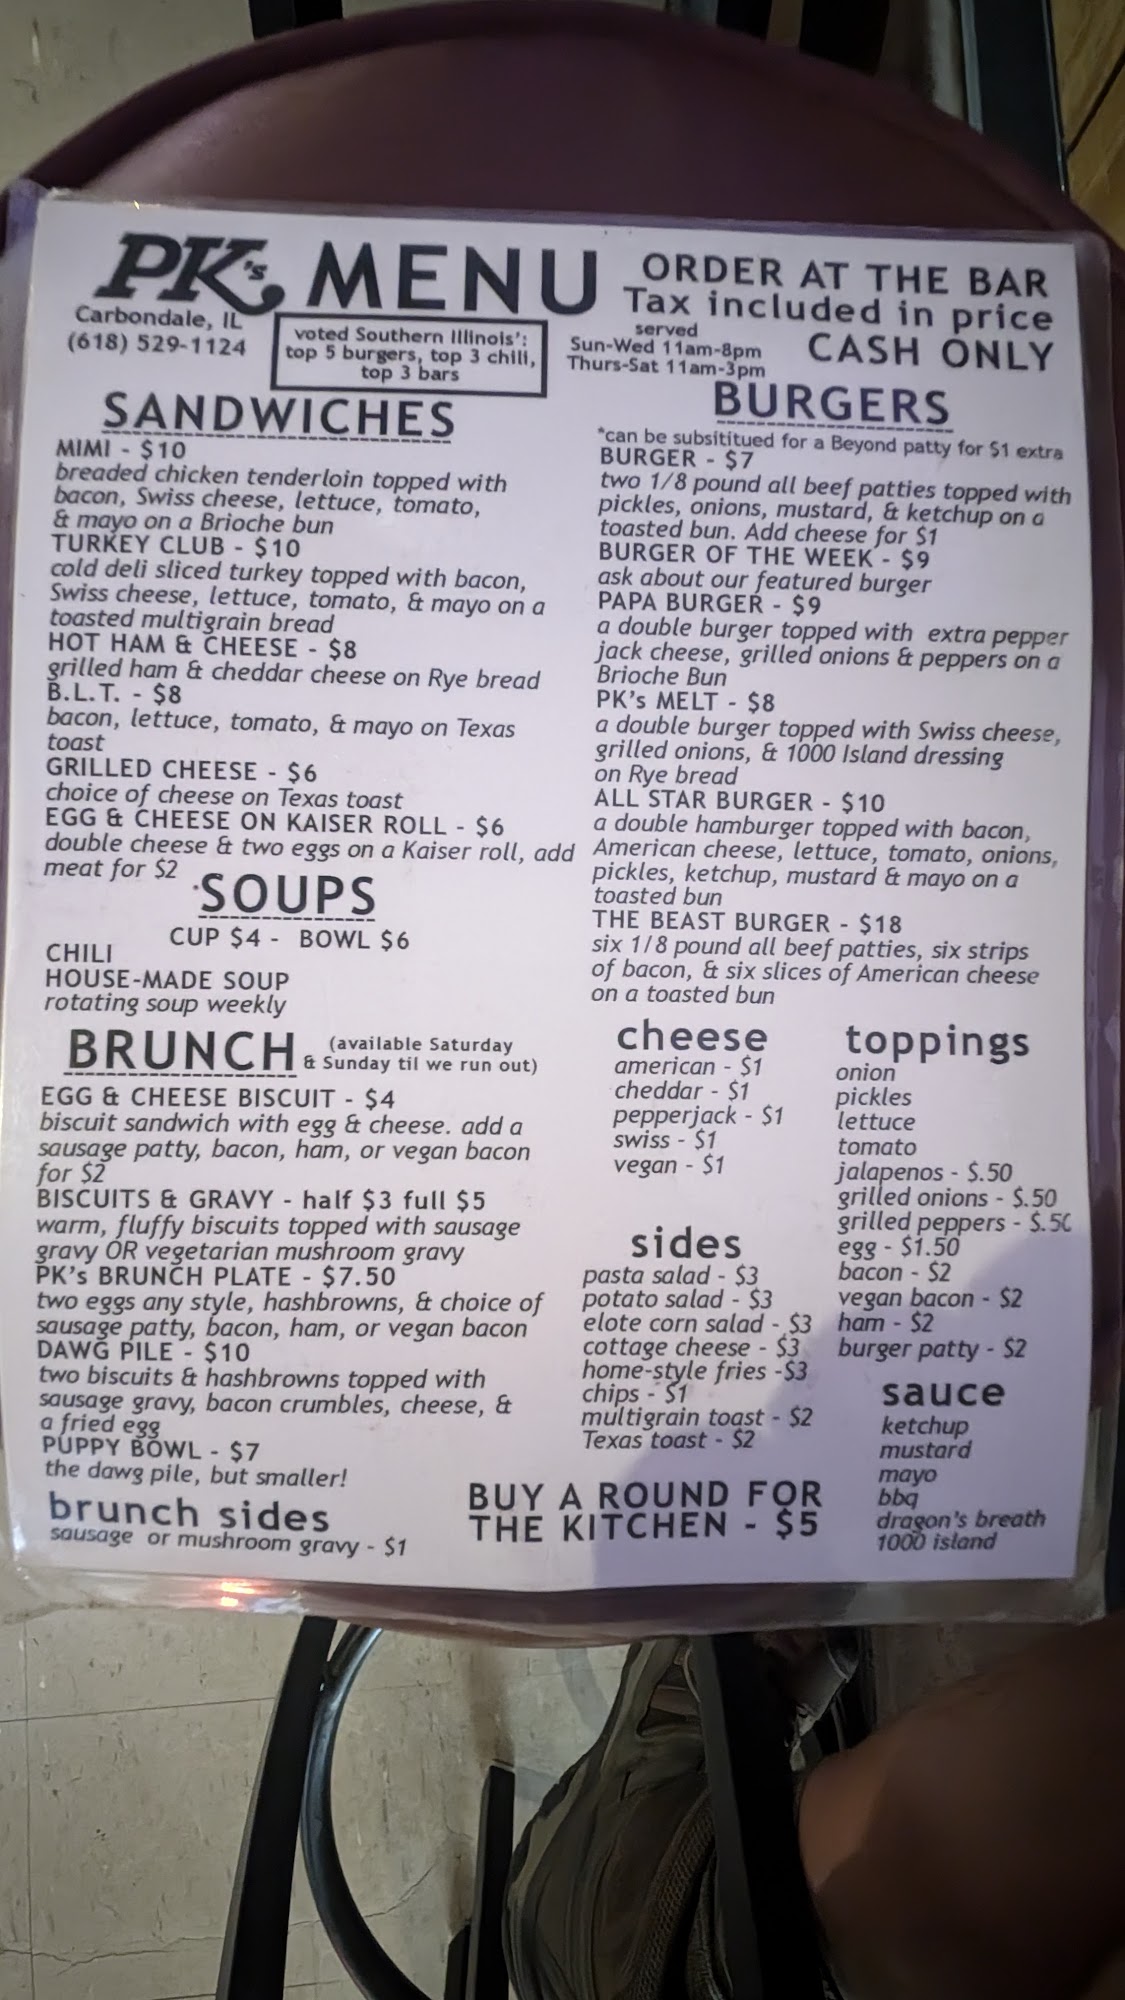 PK's MENU
Carbondale, IL
(618) 529-1124
voted Southern Illinois':
top 5 burgers, top 3 chili,
top 3 bars
ORDER AT THE BAR
Tax included in price
served
Sun-Wed 11am-8pm
Thurs-Sat 11am-3pm
CASH ONLY
SANDWICHES
MIMI - $10
breaded chicken tenderloin topped with
bacon, Swiss cheese, lettuce, tomato,
& mayo on a Brioche bun
TURKEY CLUB - $10
cold deli sliced turkey topped with bacon,
Swiss cheese, lettuce, tomato, & mayo on a
toasted multigrain bread
HOT HAM & CHEESE - $8
grilled ham & cheddar cheese on Rye bread
B.L.T. - $8
bacon, lettuce, tomato, & mayo on Texas
toast
GRILLED CHEESE - $6
choice of cheese on Texas toast
EGG & CHEESE ON KAISER ROLL - $6
double cheese & two eggs on a Kaiser roll, add
meat for $2
SOUPS
CUP $4 - BOWL $6
CHILI
HOUSE-MADE SOUP
rotating soup weekly
BRUNCH (available Saturday
& Sunday til we run out)
EGG & CHEESE BISCUIT - $4
biscuit sandwich with egg & cheese. add a
sausage patty, bacon, ham, or vegan bacon
for $2
BISCUITS & GRAVY - half $3 full $5
warm, fluffy biscuits topped with sausage
gravy OR vegetarian mushroom gravy
PK's BRUNCH PLATE - $7.50
two eggs any style, hashbrowns, & choice of
sausage patty, bacon, ham, or vegan bacon
DAWG PILE - $10
two biscuits & hashbrowns topped with
sausage gravy, bacon crumbles, cheese, &
a fried egg
PUPPY BOWL - $7
the dawg pile, but smaller!
brunch sides
sausage or mushroom gravy - $1
BURGERS
*can be subsititued for a Beyond patty for $1 extra
BURGER - $7
two 1/8 pound all beef patties topped with
pickles, onions, mustard, & ketchup on a
toasted bun. Add cheese for $1
BURGER OF THE WEEK - $9
ask about our featured burger
PAPA BURGER - $9
a double burger topped with extra pepper
jack cheese, grilled onions & peppers on a
Brioche Bun
PK's MELT - $8
a double burger topped with Swiss cheese,
grilled onions, & 1000 Island dressing
on Rye bread
ALL STAR BURGER - $10
a double hamburger topped with bacon,
American cheese, lettuce, tomato, onions,
pickles, ketchup, mustard & mayo on a
toasted bun
THE BEAST BURGER - $18
six 1/8 pound all beef patties, six strips
of bacon, & six slices of American cheese
on a toasted bun
cheese
american - $1
cheddar - $1
pepperjack - $1
swiss - $1
vegan - $1
sides
pasta salad - $3
potato salad - $3
elote corn salad - $3
cottage cheese - $3
home-style fries -$3
chips - $1
multigrain toast - $2
Texas toast - $2
toppings
onion
pickles
lettuce
tomato
jalapenos - $.50
grilled onions - $.50
grilled peppers - $.50
egg - $1.50
bacon - $2
vegan bacon - $2
ham - $2
burger patty - $2
sauce
ketchup
mustard
mayo
bbq
dragon's breath
1000 island
BUY A ROUND FOR
THE KITCHEN - $5